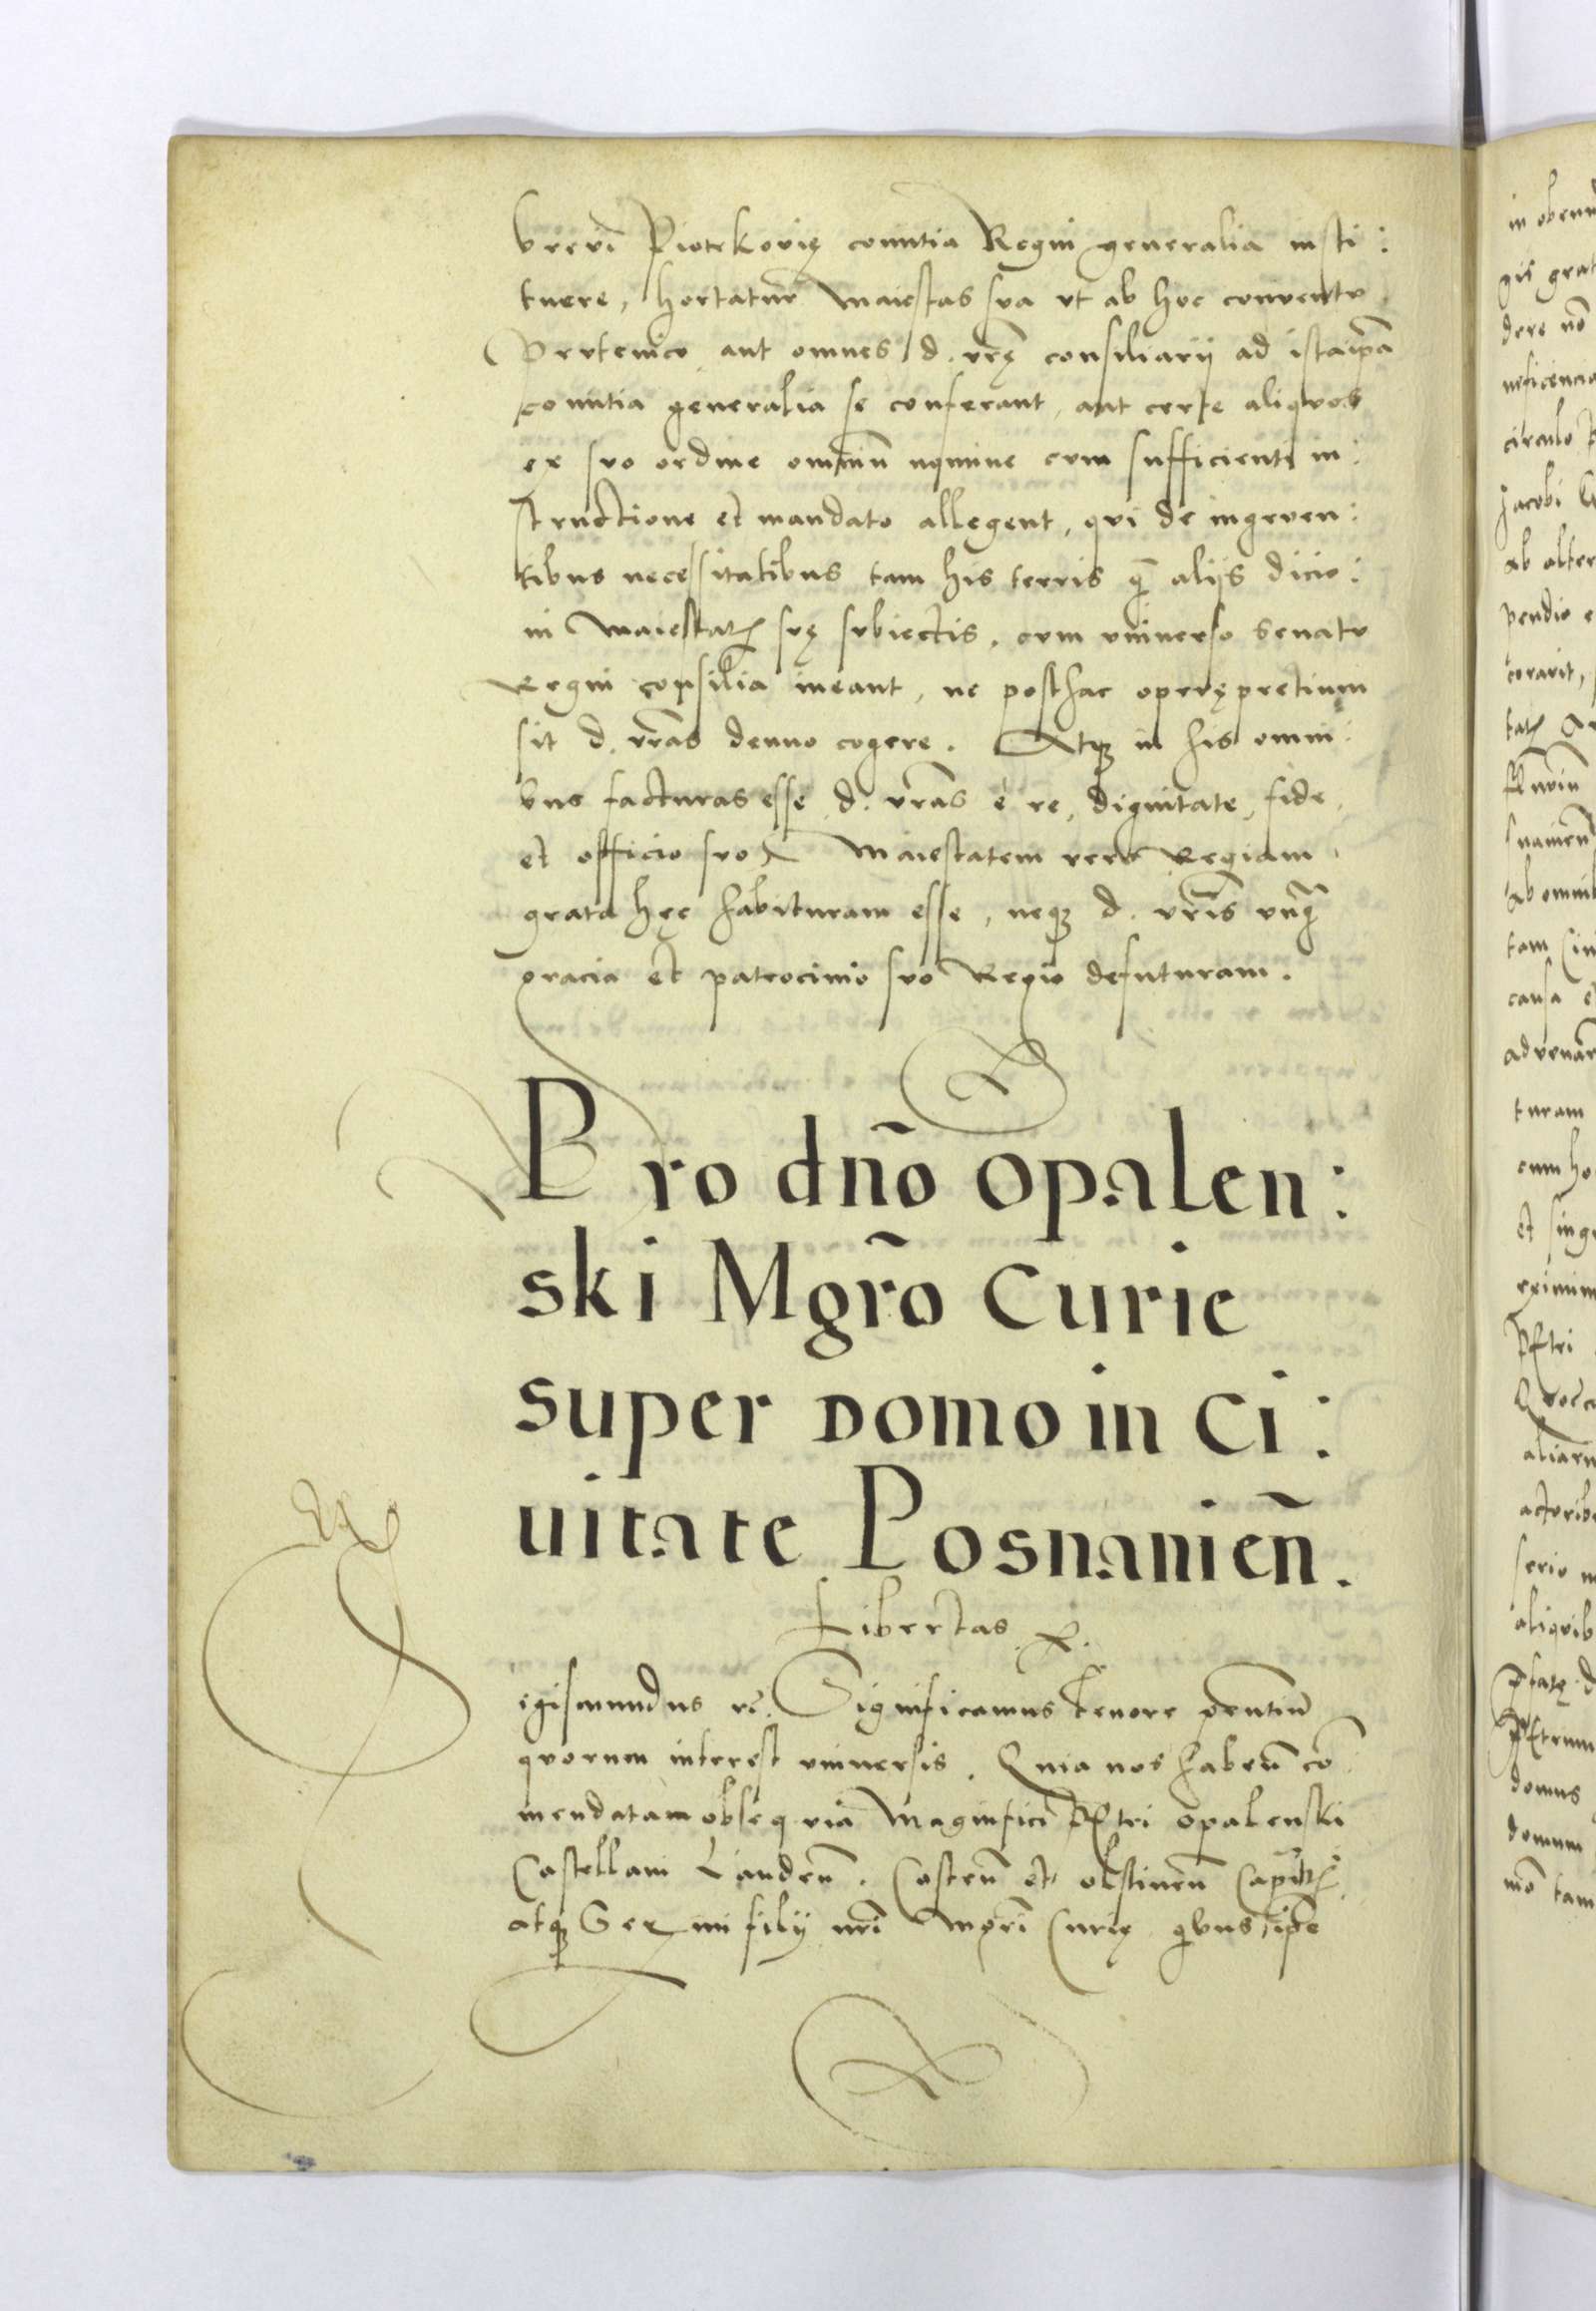 breui Piotrkovię comitia Regni generalia insti:
tuere, hortatur Maiestas sua vt ab hoc conuentu
Prutenico aut omnes d. vrę̃ consiliarij ad ista ip̃a
comitia generalia se conferant, aut certe aliquos
ex suo ordine omniũ nomine cum sufficienti in:
structione et mandato allegent, qui de ingruen:
tibus necessitatibus tam his terris q̃ alijs dicio:
ni Maiestatis suę subiectis, cum vniuerso senatu
Regni consilia ineant, ne posthac operępretium
sit d. vrãs denuo cogere. Atq3 in his omni:
bus facturas esse d. vrãs è re, dignitate, fide,
et officio suo. Maiestatem vero Regiam
grata hęc habituram esse, neq3 d. vrĩs vnq̃
gracia et patrocinio suo Regio defuturam.
Pro dño Opalen:
ski Mgrõ Curie
super Domo in Ci:
uitate Posnanień.
Libertas
Sigismundus rc. Significamus tenore pñtiũ
quorum interest vniuersis. Quia nos habeñ cõ
mendatam obsequia Magnifici Petri Opalenski
Castellani Landeñ. Costeñ et olstineñ Capitã
atq3 Serᵐⁱ filij nrĩ Mgrĩ Curię qbus ip̃e
in
gis
dere nõ
circulo
Jacobi
pendio
causa
turam
et
Petri
serio
Petrum
domus
domum
tam